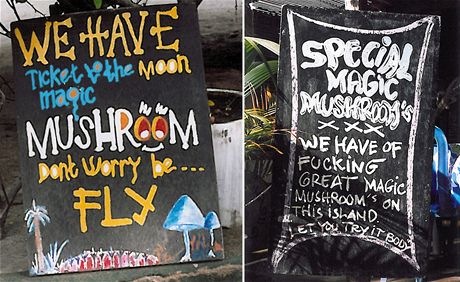 WE HAVE
Ticket to the MOON
magic
MUSHROOM
Dont worry be....
FLY
SPECIAL
MAGIC
MUSHROOM'S
XXX
WE HAVE OF
FUCKING
GREAT MAGIC
MUSHROOM'S ON
THIS ISLAND.
LET YOU TRY IT BODY